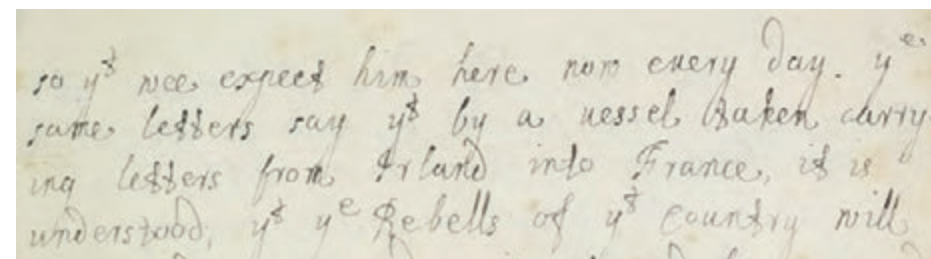 so yt wee expect him here now every day. ye
same letters say yt by a uessel taken carry
ing letters from Irland into France, it is
understood, yt ye Rebells of yt Country will